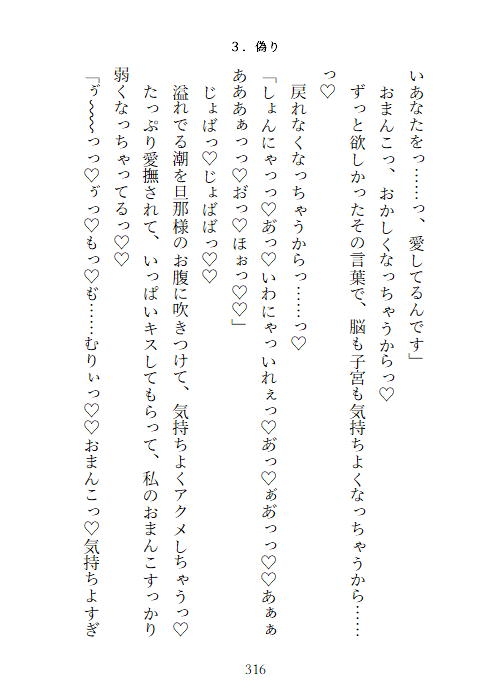 3. 偽り
いあなたをっ……っ、愛してるんです」
おまんこっ、おかしくなっちゃうからっ♡
ずっと欲しかったその言葉で、脳も子宮も気持ちよくなっちゃうから……
っ♡
戻れなくなっちゃうからっ……っ♡
「しょんにゃっっ♡あ゛っ♡いわにゃっいれぇっ♡あ゛っ♡ぁ゛あ゛っっ♡♡あぁぁ
あああぁっっ♡お゛っ♡ほぉっ♡♡」
じょばっ♡じょばばっ♡♡
溢れでる潮を旦那様のお腹に吹きつけて、気持ちよくアクメしちゃうっ♡
たっぷり愛撫されて、いっぱいキスしてもらって、私のおまんこすっかり
弱くなっちゃってるっ♡♡
「ゔ～～～っっ♡ゔっ♡もっ♡も゛……むりぃっ♡♡おまんこっ♡気持ちよすぎ
316